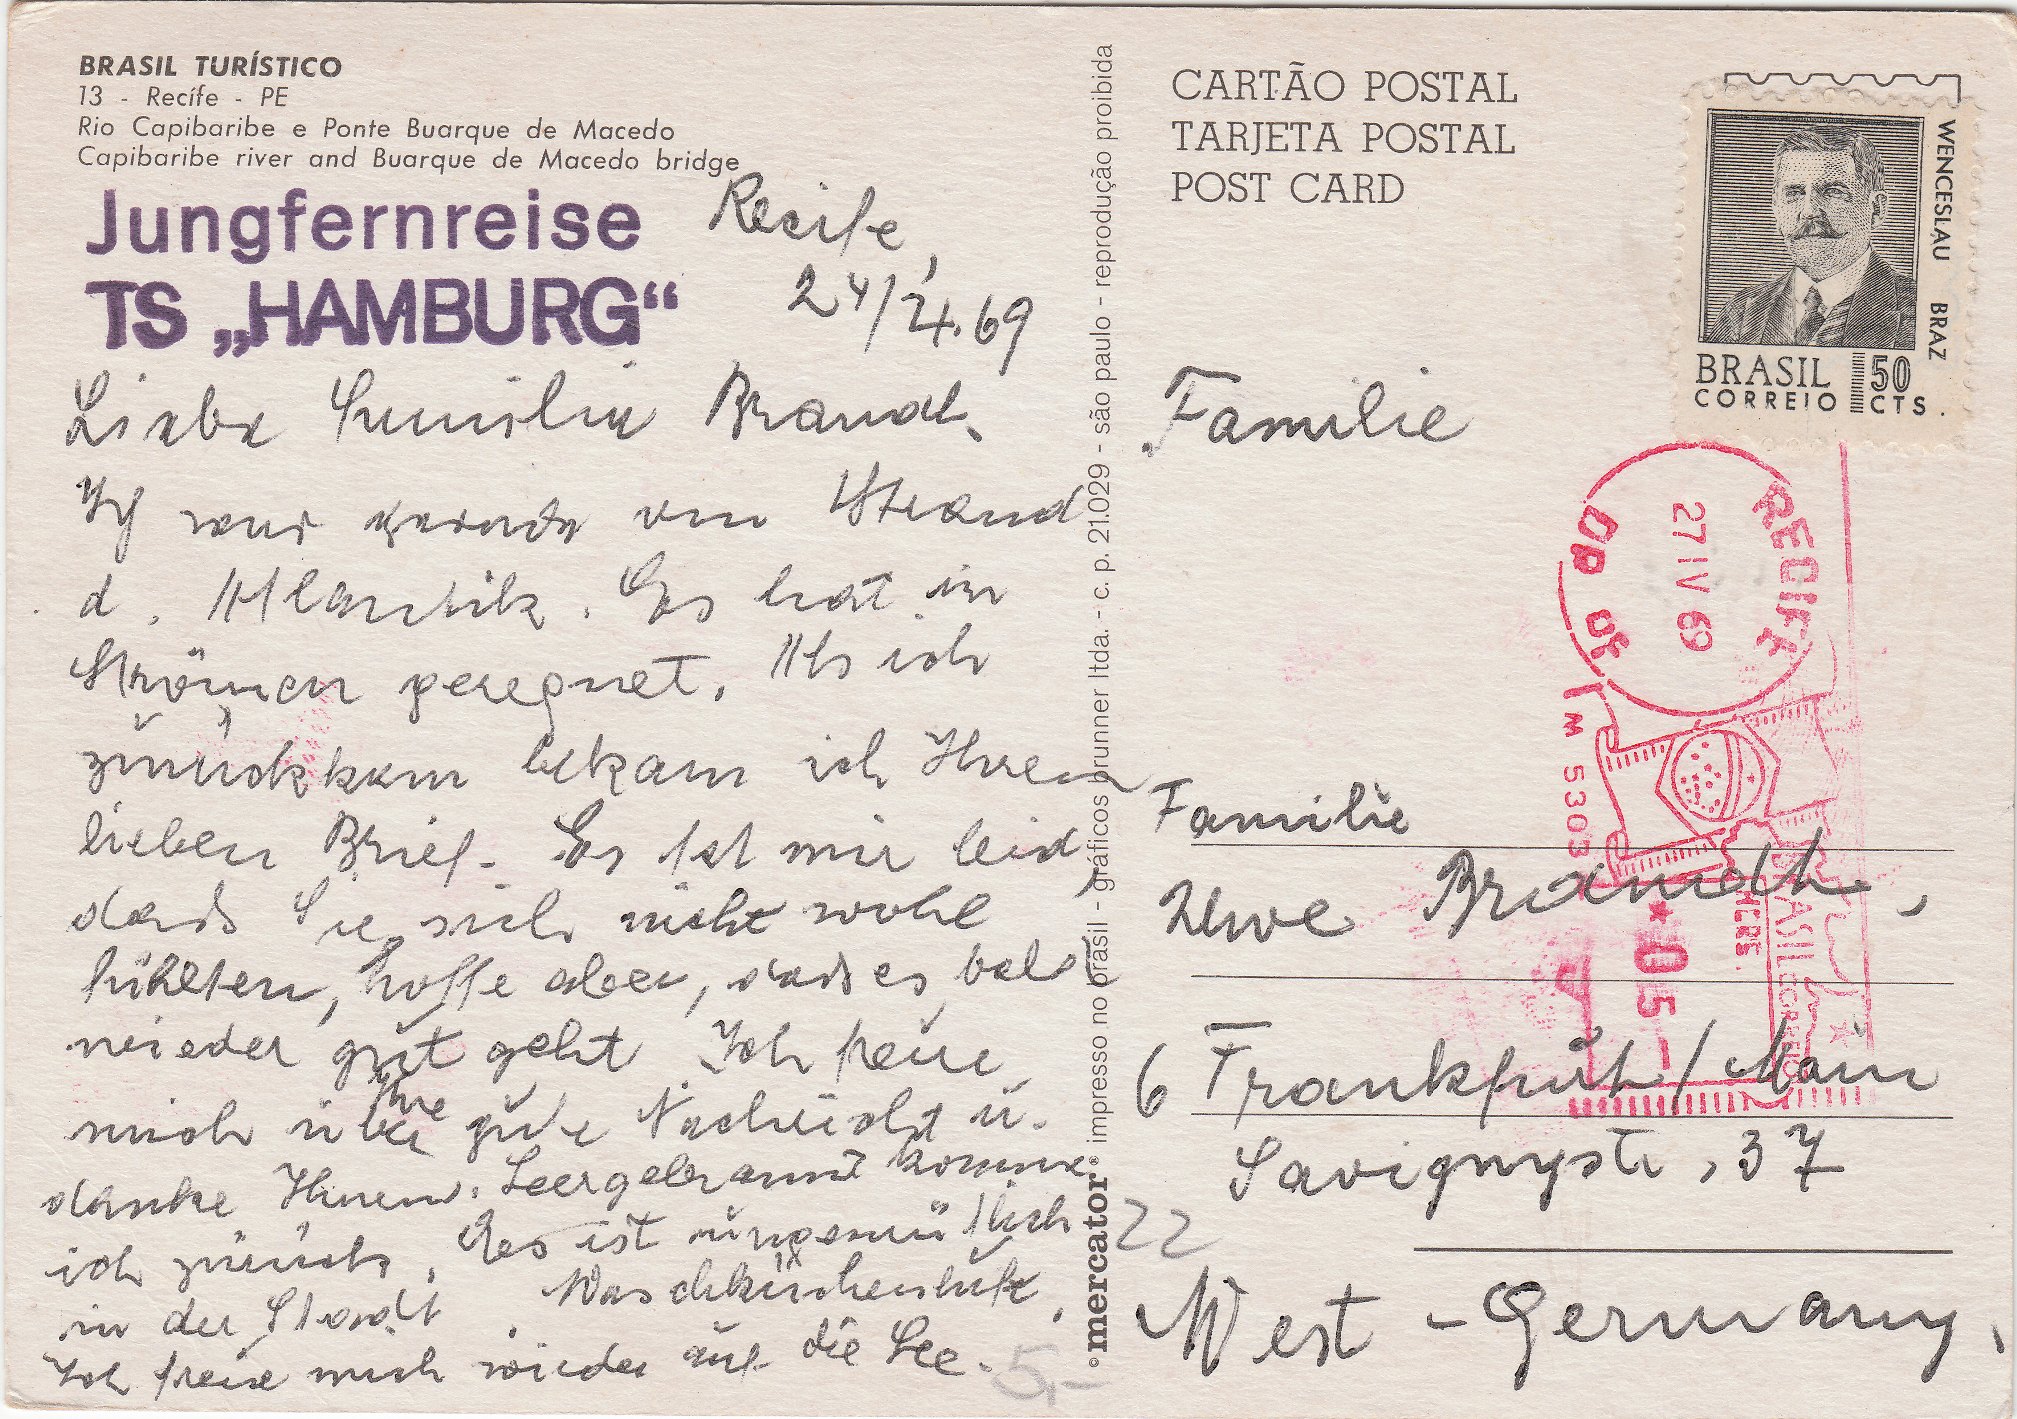 BRASIL TURÍSTICO
13 - Recife - PE
Rio Capibaribe e Ponte Buarque de Macedo
Capibaribe river and Buarque de Macedo bridge
Jungfernreise
TS „HAMBURG“
Recife,
24/4.69
Liebe Familie Brandt,
Ich war gerade am Strand
d. Atlantik. Es hat in
Strömen geregnet. Als ich
zurückkam bekam ich Ihren
lieben Brief. Es tut mir leid
dass Sie sich nicht wohl
fühlten, hoffe aber, dass es bald
wieder gut geht. Ich freue
mich über Ihre gute Nachricht u.
danke Ihnen. komme
ich zurück. Es ist ungemütlich
in der Stadt. Waschküchenluft.
Ich freue mich wieder auf die See.
5,-
impresso no brasil - gráficos brunner ltda. - c. p. 21.029 - são paulo - reprodução proibida
mercator
CARTÃO POSTAL
TARJETA POSTAL
POST CARD
WENCESLAU BRAZ
BRASIL 50
CORREIO CTS.
RECIFE
27 IV 69
M 5303
BRASIL CORREIO
05
Familie
Familie
Uwe Brandt,
6 Frankfurt/Main
Savignystr. 37
22
West-Germany.